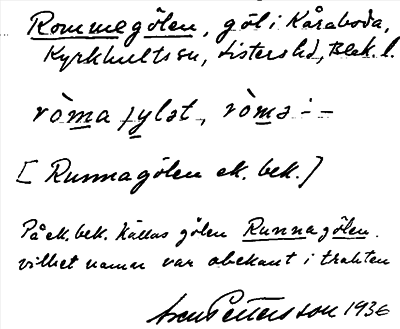 Rommegölen, göl i Kåraboda,
Kyrkhults sn, Listers hd, Blek. l.
ròma jylət, ròmə : –
[Runnagölen ek. bek.]
På ek. bek. kallas gölen Runnagölen.
vilket namn var obekant i trakten
Pettersson 1936